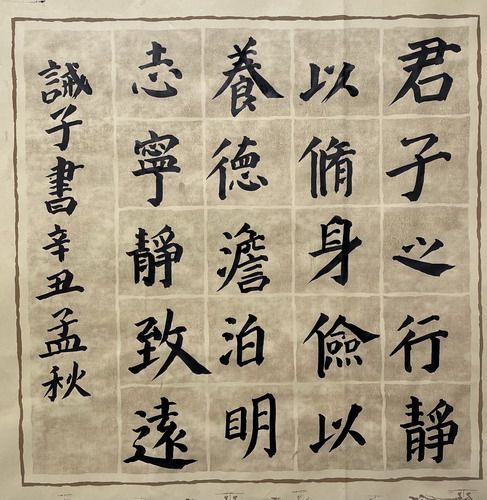 君子之行靜
以脩身儉以
養德澹泊明
志寧靜致遠
誡子書辛丑孟秋